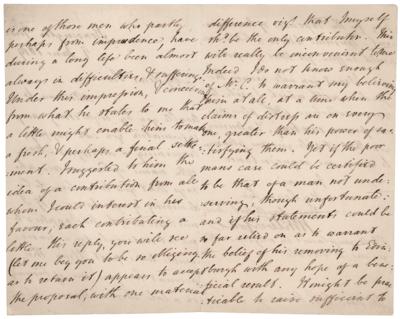 is one of those men who partly,
perhaps from imprudence, have
during a long life been almost
always in difficulties, & suffering.
Under this impression, & conceiving
from what he states to me that
a little might enable him to make
a fresh, & perhaps a final settle-
ment. I suggested to him the
idea of a contribution from all
whom I could interest in his
favour, each contributing a
little. His reply, you will see
(let me beg you to be so obliging
as to return it) appears to accept
the proposal, with one material
difference viz. that I myself
shd. be the only contributor. This
wd. really be inconvenient to me
Indeed I do not know enough
of Mr. C. to warrant my believing
him at all, at a time when the
claims of distress are on every
one, greater than his power of sa-
tisfying them. Yet if the poor
mans case could be certified
to be that of a man not unde-
serving, though unfortunate:
and if his statements could be
so far relied on as to warrant
the belief of his removing to Edin-
burgh with any hope of a bene-
ficial result. It might be prac-
ticable to raise sufficient to